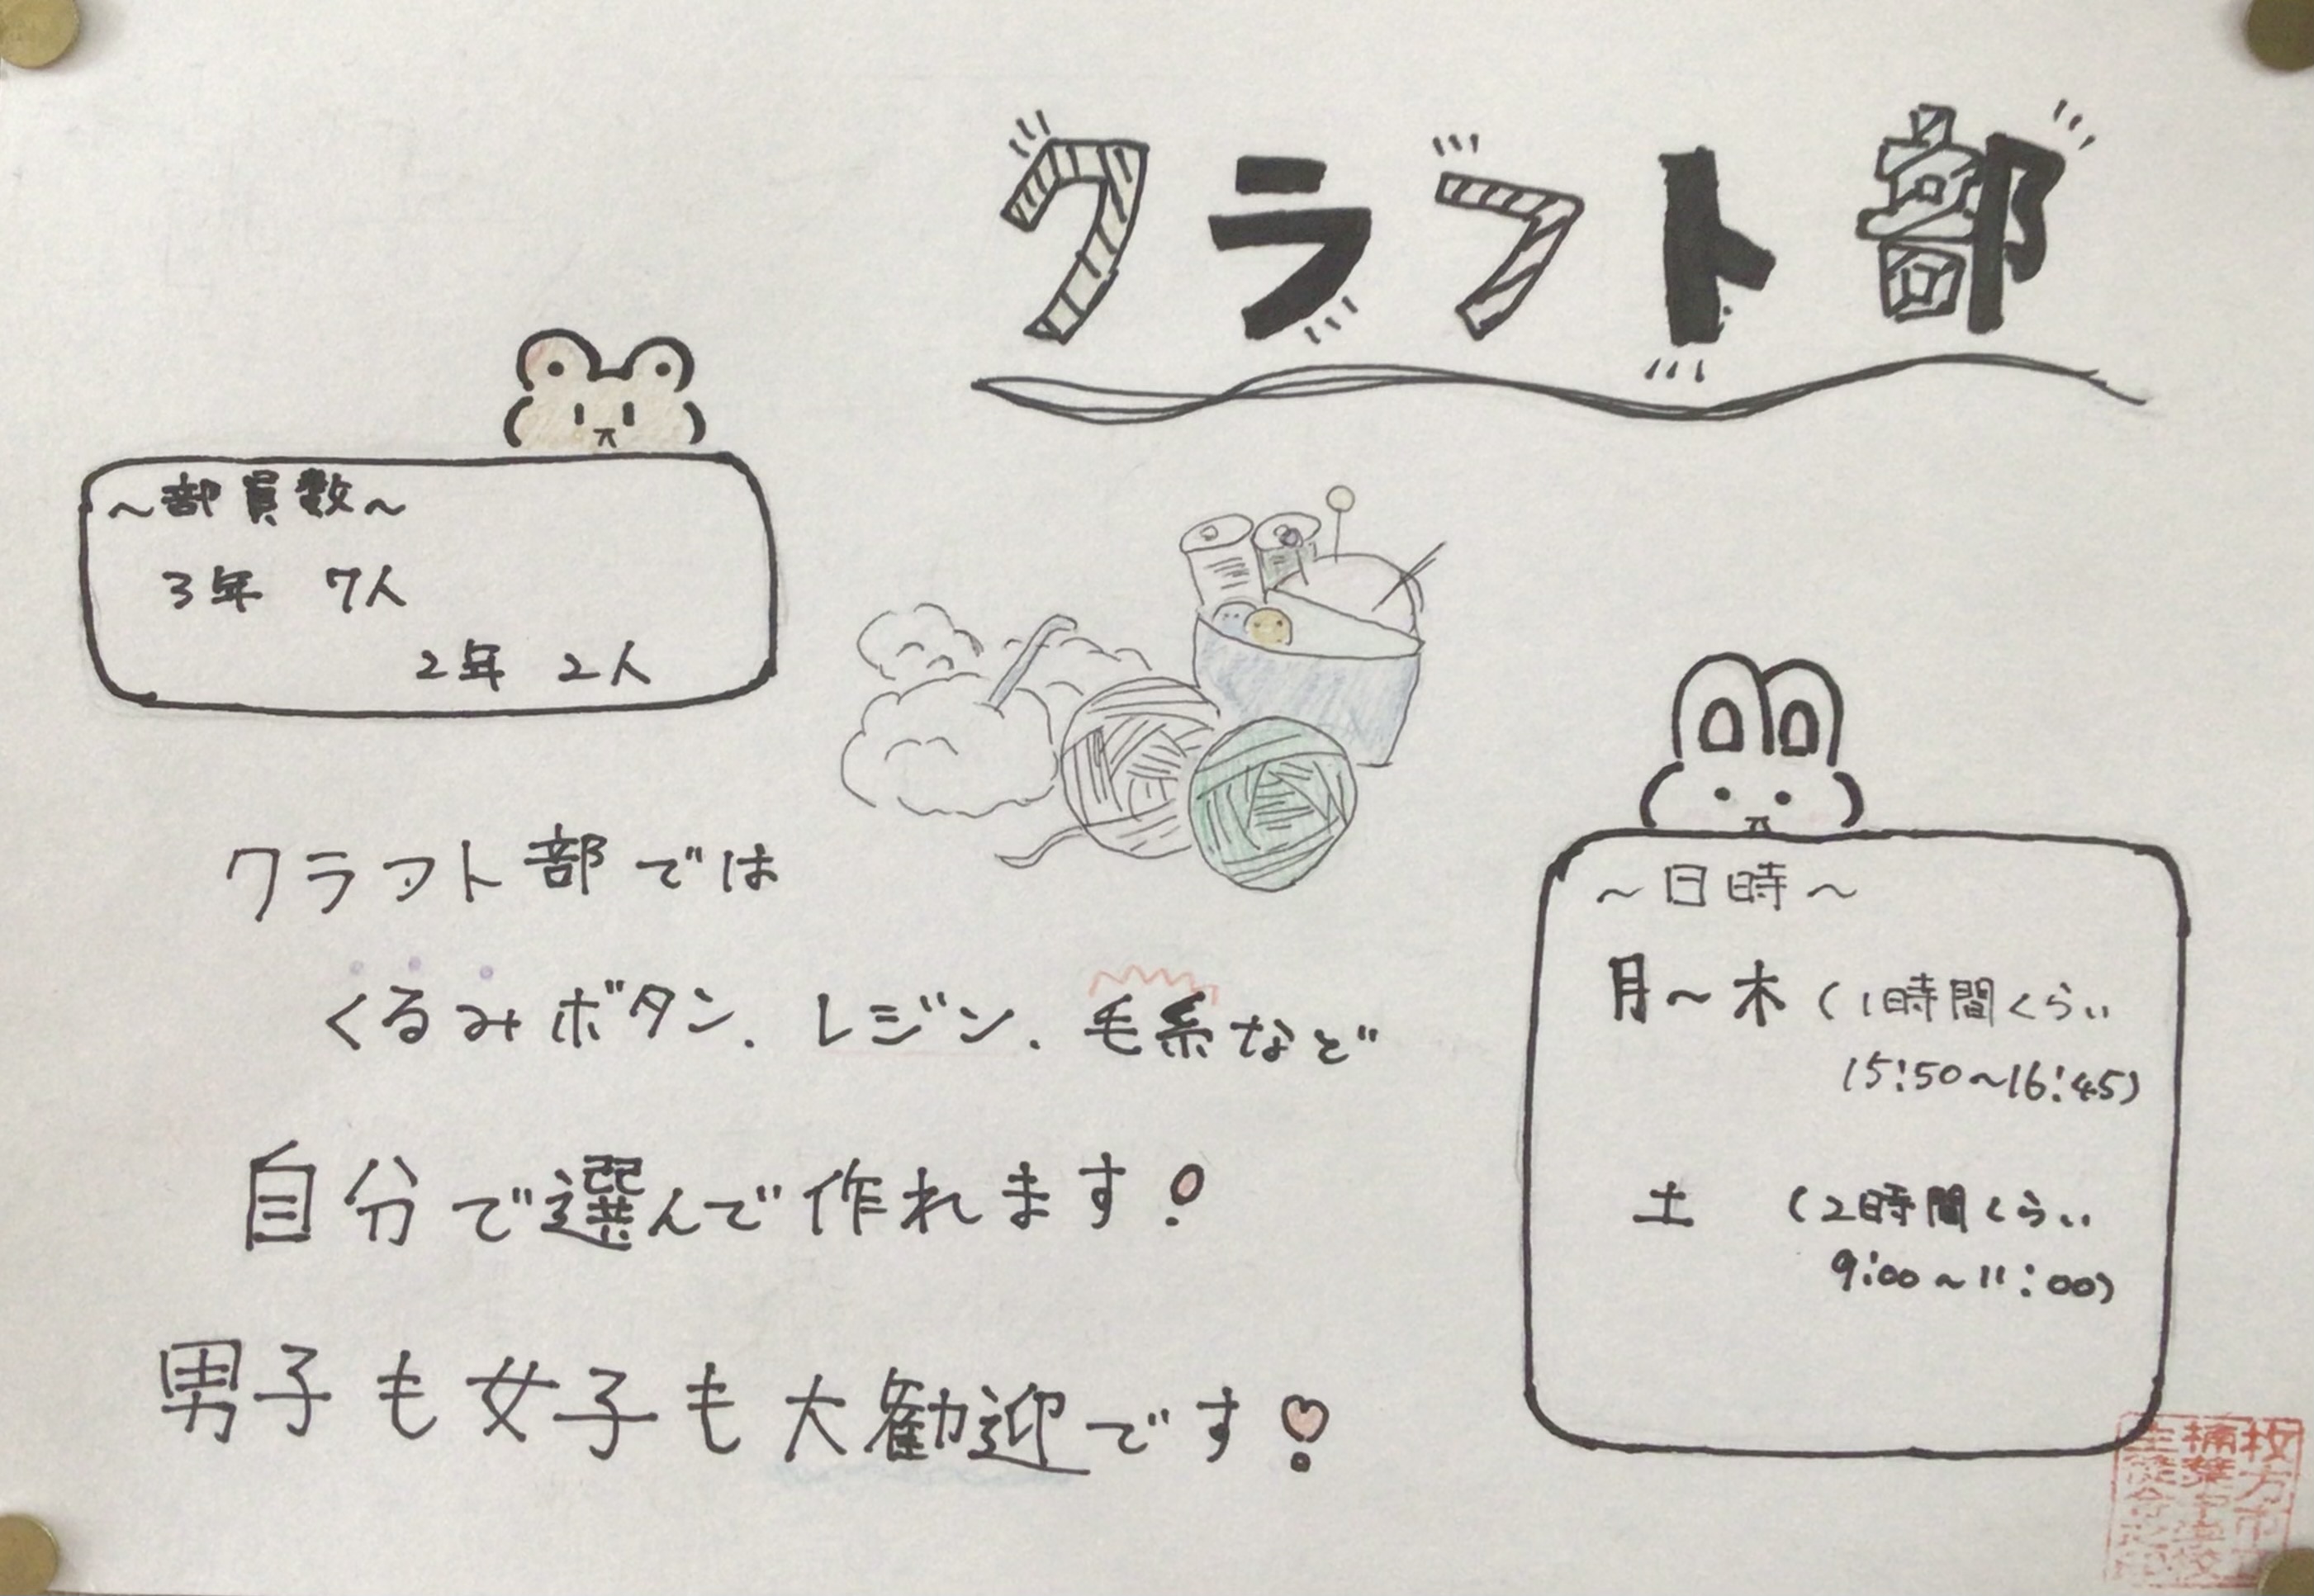 クラフト部
～部員数～
3年 7人
2年 2人
クラフト部では
くるみボタン、レジン、毛糸など
自分で選んで作れます!
男子も女子も大歓迎です!
～日時～
月～木(1時間くらい
15:50～16:45)
土 (2時間くらい
9:00～11:00)
枚方市立
楠葉中学校
生徒会